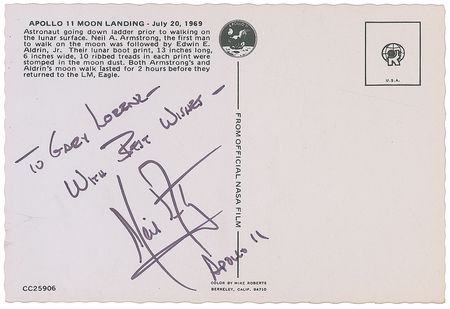 APOLLO 11 MOON LANDING - July 20, 1969
Astronaut going down ladder prior to walking on
the lunar surface. Neil A. Armstrong, the first man
to walk on the moon was followed by Edwin E.
Aldrin, Jr. Their lunar boot print, 13 inches long,
6 inches wide, 10 ribbed treads in each print were
stomped in the moon dust. Both Armstrong's and
Aldrin's moon walk lasted for 2 hours before they
returned to the LM, Eagle.
TO GARY LORENZ -
WITH BEST WISHES -
Neil
APOLLO 11
FROM OFFICIAL NASA FILM
U.S.A.
CC25906
COLOR BY MIKE ROBERTS
BERKELEY, CALIF. 94710